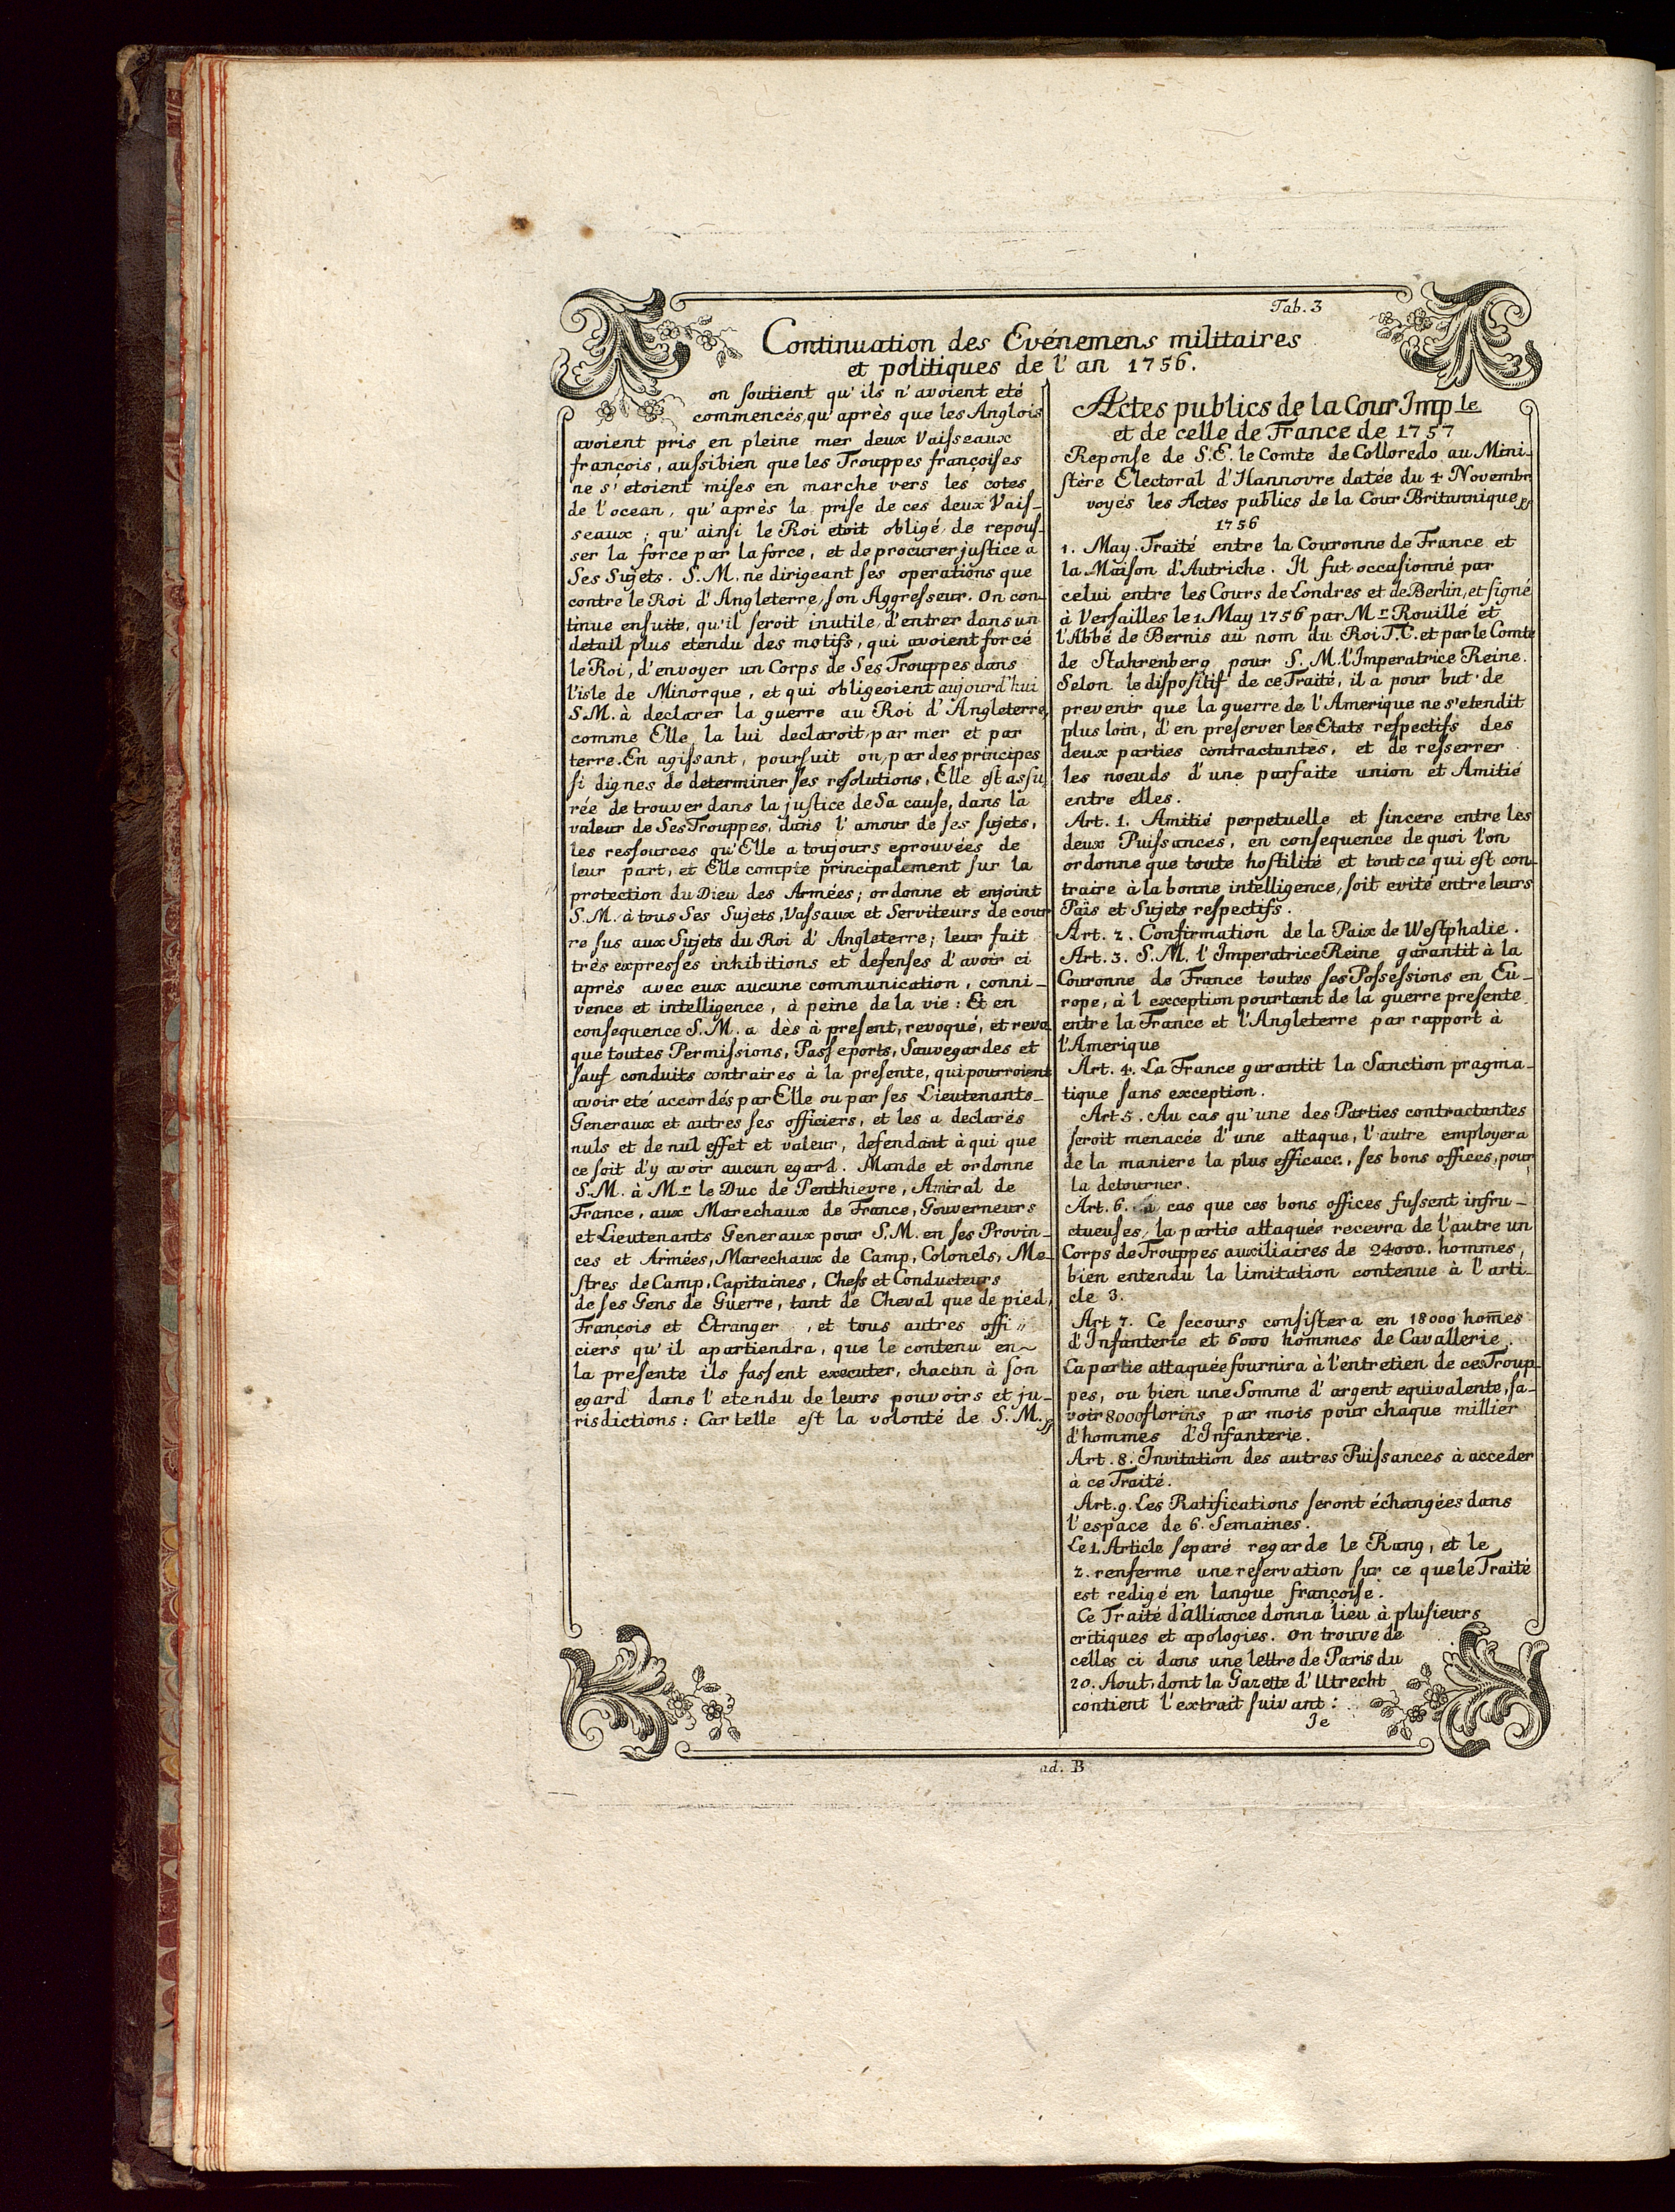 Tab. 3
Continuation des Evénemens militaires
et politiques de l' an 1756.
on soutient qu' ils n' avoient eté
commencés, qu' après que les Anglois
avoient pris en pleine mer deux Vaisseaux
françois, aussibien que les Trouppes françoises
ne s' etoient mises en marche vers les cotes
de l' ocean, qu' après la prise de ces deux Vais-
seaux; qu' ainsi le Roi etoit obligé de repous-
ser la force par la force, et de procurer justice à
Ses Sujets. S. M. ne dirigeant ses operations que
contre le Roi d' Angleterre, son Aggresseur. On con-
tinue ensuite, qu'il seroit inutile, d'entrer dans un
detail plus etendu des motifs, qui avoient forcé
le Roi, d'envoyer un Corps de Ses Trouppes dans
l'isle de Minorque, et qui obligeoient aujourd'hui
S.M. à declarer la guerre au Roi d' Angleterre,
comme Elle la lui declaroit par mer et par
terre. En agissant, poursuit on, par des principes
si dignes de determiner ses resolutions, Elle est assu-
rée de trouver dans la justice de Sa cause, dans la
valeur de Ses Trouppes, dans l' amour de ses sujets,
les ressources qu'Elle a toujours eprouvées de
leur part, et Elle compte principalement sur la
protection du Dieu des Armées; ordonne et enjoint
S.M. à tous Ses Sujets, Vassaux et Serviteurs de cour
re sus aux Sujets du Roi d' Angleterre; leur fait
très expresses inhibitions et defenses d' avoir ci
après avec eux aucune communication, conni-
vence et intelligence, à peine de la vie: Et en
consequence S.M. a dès à present, revoqué, et revo
que toutes Permissions, Passeports, Sauvegardes et
sauf conduits contraires à la presente, qui pourroient
avoir eté accordés par Elle ou par ses Lieutenants-
Generaux et autres ses officiers, et les a declarés
nuls et de nul effet et valeur, defendant à qui que
ce soit d'y avoir aucun egard. Mande et ordonne
S.M. à Mr le Duc de Penthievre, Amiral de
France, aux Marechaux de France, Gouverneurs
et Lieutenants Generaux pour S.M. en ses Provin-
ces et Armées, Marechaux de Camp, Colonels, Me-
stres de Camp, Capitaines, Chefs et Conducteurs
de ses Gens de Guerre, tant de Cheval que de pied,
François et Etranger, et tous autres offi"
ciers qu' il apartiendra, que le contenu en~
la presente ils fassent executer, chacun à son
egard dans l' etendu de leurs pouvoirs et ju-
risdictions: Car telle est la volonté de S. M.
Actes publics de la Cour Imp le
et de celle de France de 1757
Reponse de S.E. le Comte de Colloredo au Mini-
stère Electoral d'Hannovre datée du 4 Novembr
voyés les Actes publics de la Cour Britannique
1756
1. May. Traité entre la Couronne de France et
la Maison d'Autriche. Il fut occasionné par
celui entre les Cours de Londres et de Berlin, et signé
à Versailles le 1 May 1756 par Mr Rouillé et
l'Abbé de Bernis au nom du Roi T.C. et par le Comte
de Stahrenberg pour S. M. l'Imperatrice Reine.
Selon le dispositif de ce Traité, il a pour but de
prevenir que la guerre de l' Amerique ne s'etendit
plus loin, d'en preserver les Etats respectifs des
deux parties contractantes, et de resserrer
les noeuds d' une parfaite union et Amitié
entre elles.
Art. 1. Amitié perpetuelle et sincere entre les
deux Puissances, en consequence de quoi l'on
ordonne que toute hostilité et tout ce qui est con-
traire à la bonne intelligence, soit evité entre leurs
Païs et Sujets respectifs.
Art. 2. Confirmation de la Paix de Westphalie.
Art. 3. S.M. l' Imperatrice Reine garantit à la
Couronne de France toutes ses Possessions en Eu-
rope, à l exception pourtant de la guerre presente
entre la France et l'Angleterre par rapport à
l'Amerique
Art. 4. La France garantit la Sanction pragma-
tique sans exception.
Art 5. Au cas qu' une des Parties contractantes
seroit menacée d' une attaque, l' autre employera
de la maniere la plus efficace, ses bons offices, pour
la detourner.
Art. 6. cas que ces bons offices fussent infru-
ctueuses, la partie attaquée recevra de l'autre un
Corps de Trouppes auxiliaires de 24000. hommes,
bien entendu la limitation contenue à l' arti-
cle 3.
Art 7. Ce secours consistera en 18000 hom̄es
d'Infanterie et 6000 hommes de Cavallerie.
La partie attaquée fournira à l'entretien de ces Troup-
pes, ou bien une Somme d' argent equivalente, sa-
voir 8000 florins par mois pour chaque millier
d'hommes d'Infanterie.
Art. 8. Invitation des autres Puissances à acceder
à ce Traité.
Art. 9. Les Ratifications seront échangées dans
l'espace de 6. Semaines.
Le 1. Article separé regarde le Rang, et le
2. renferme une reservation sur ce que le Traité
est redigé en langue françoise.
Ce Traité d'alliance donna lieu à plusieurs
critiques et apologies. On trouve de
celles ci dans une lettre de Paris du
20. Aout, dont la Gazette d' Utrecht
contient l' extrait suivant:
Je
ad. B